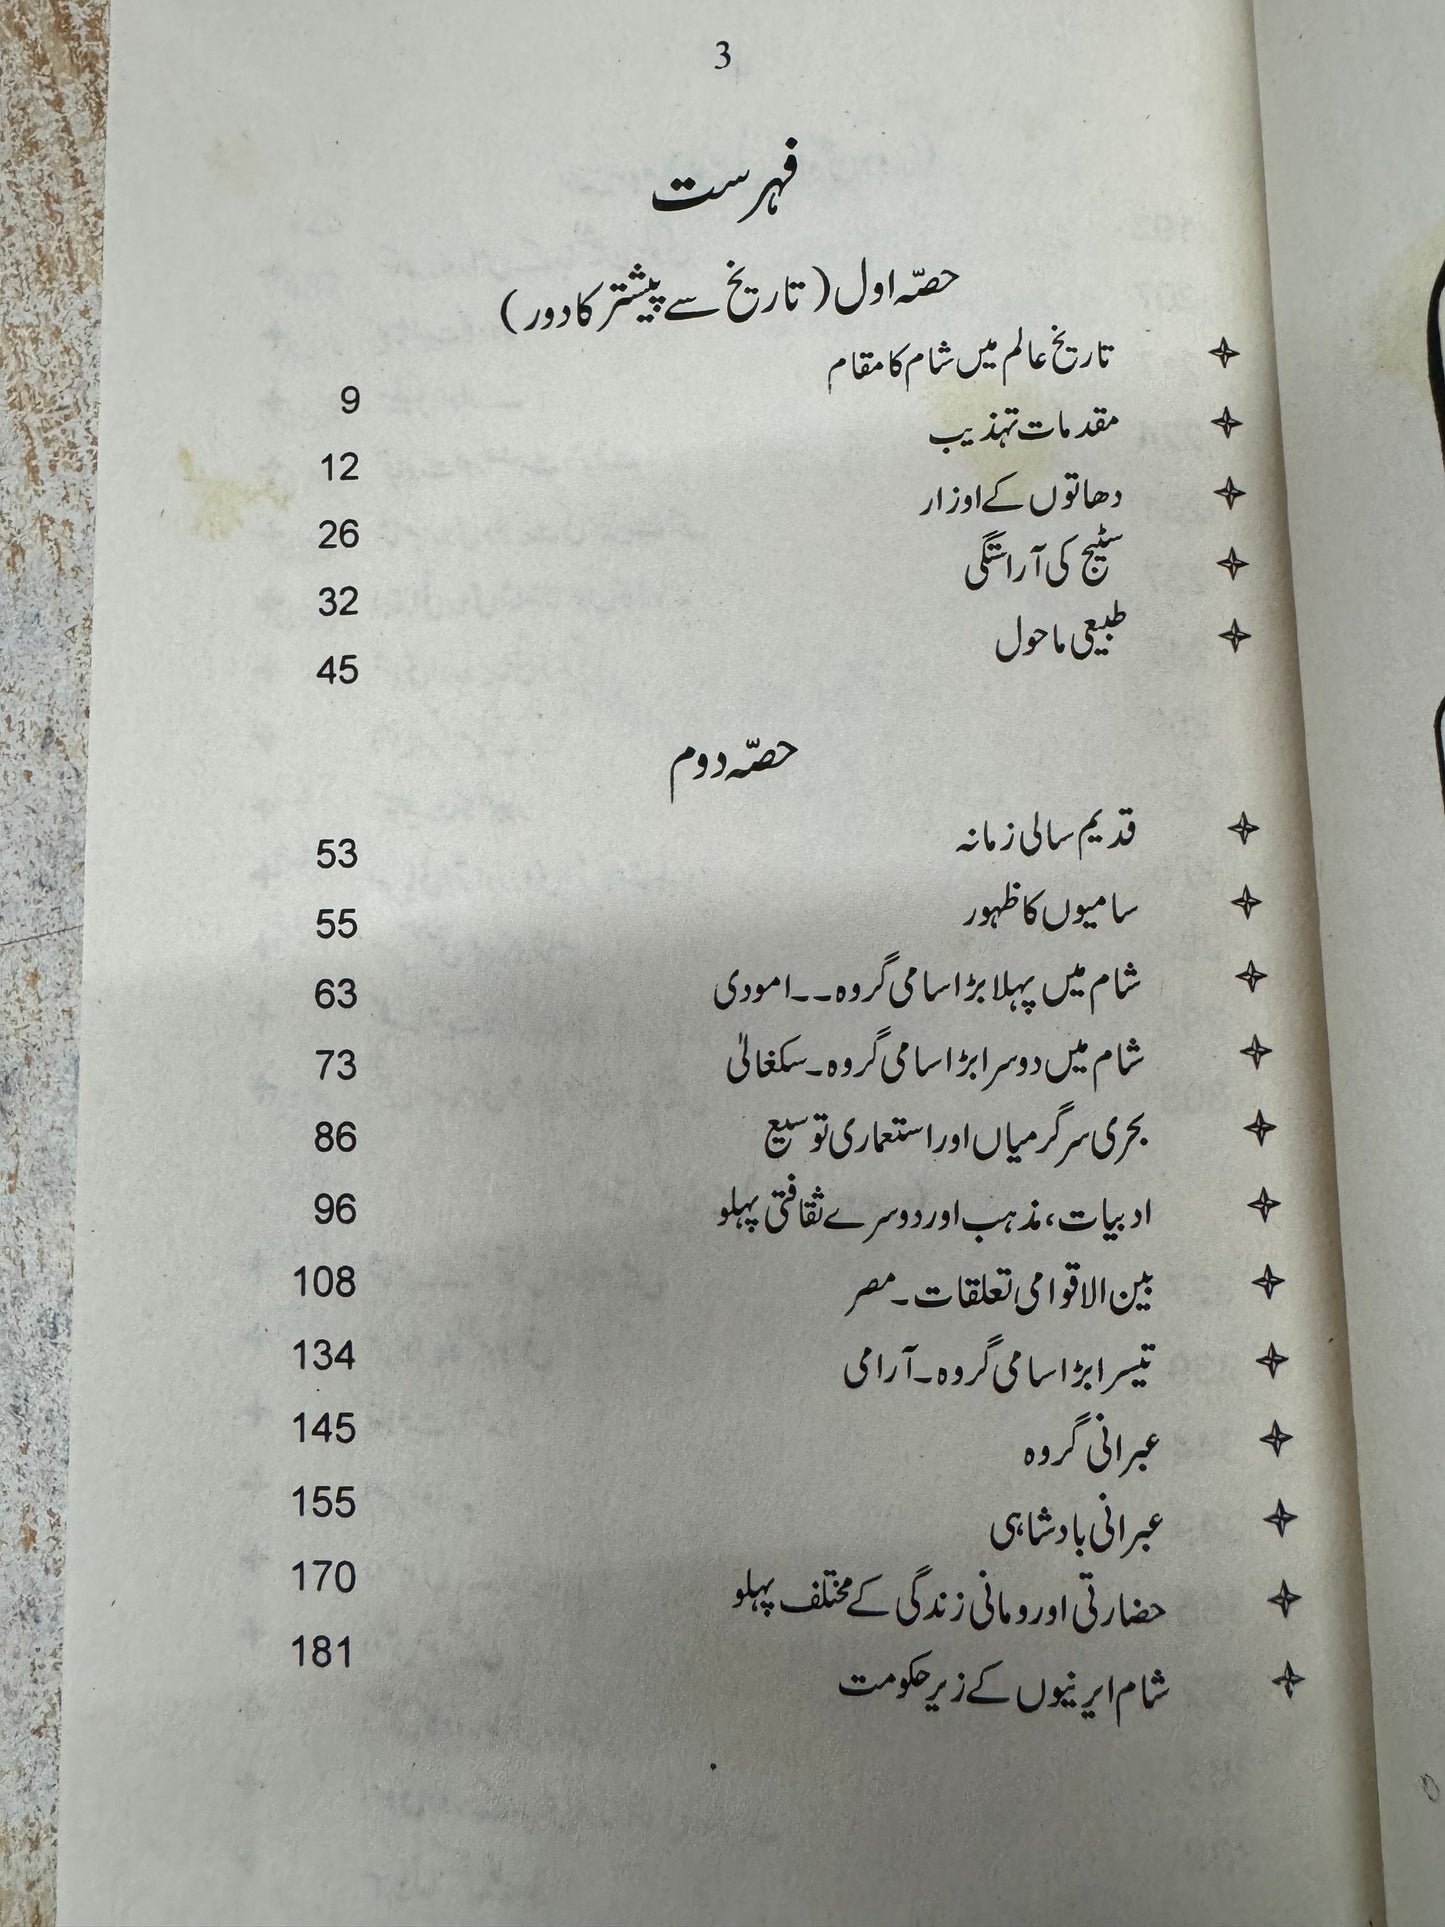 3
فہرست
حصّہ اول (تاریخ سے پیشتر کا دور)
تاریخ عالم میں شام کا مقام 9
مقدمات تہذیب 12
دھاتوں کے اوزار 26
سٹیج کی آراستگی 32
طبیعی ماحول 45
حصّہ دوم
قدیم سالی زمانہ 53
سامیوں کا ظہور 55
شام میں پہلا بڑا سامی گروہ۔۔امودی 63
شام میں دوسرا بڑا سامی گروہ۔سکغالیٰ 73
بحری سرگرمیاں اور استعماری توسیع 86
ادبیات، مذہب اور دوسرے ثقافتی پہلو 96
بین الاقوامی تعلقات۔مصر 108
تیسرا بڑا سامی گروہ۔آرامی 134
عبرانی گروہ 145
عبرانی بادشاہی 155
حضارتی اور ومانی زندگی کے مختلف پہلو 170
شام ایرنیوں کے زیر حکومت 181